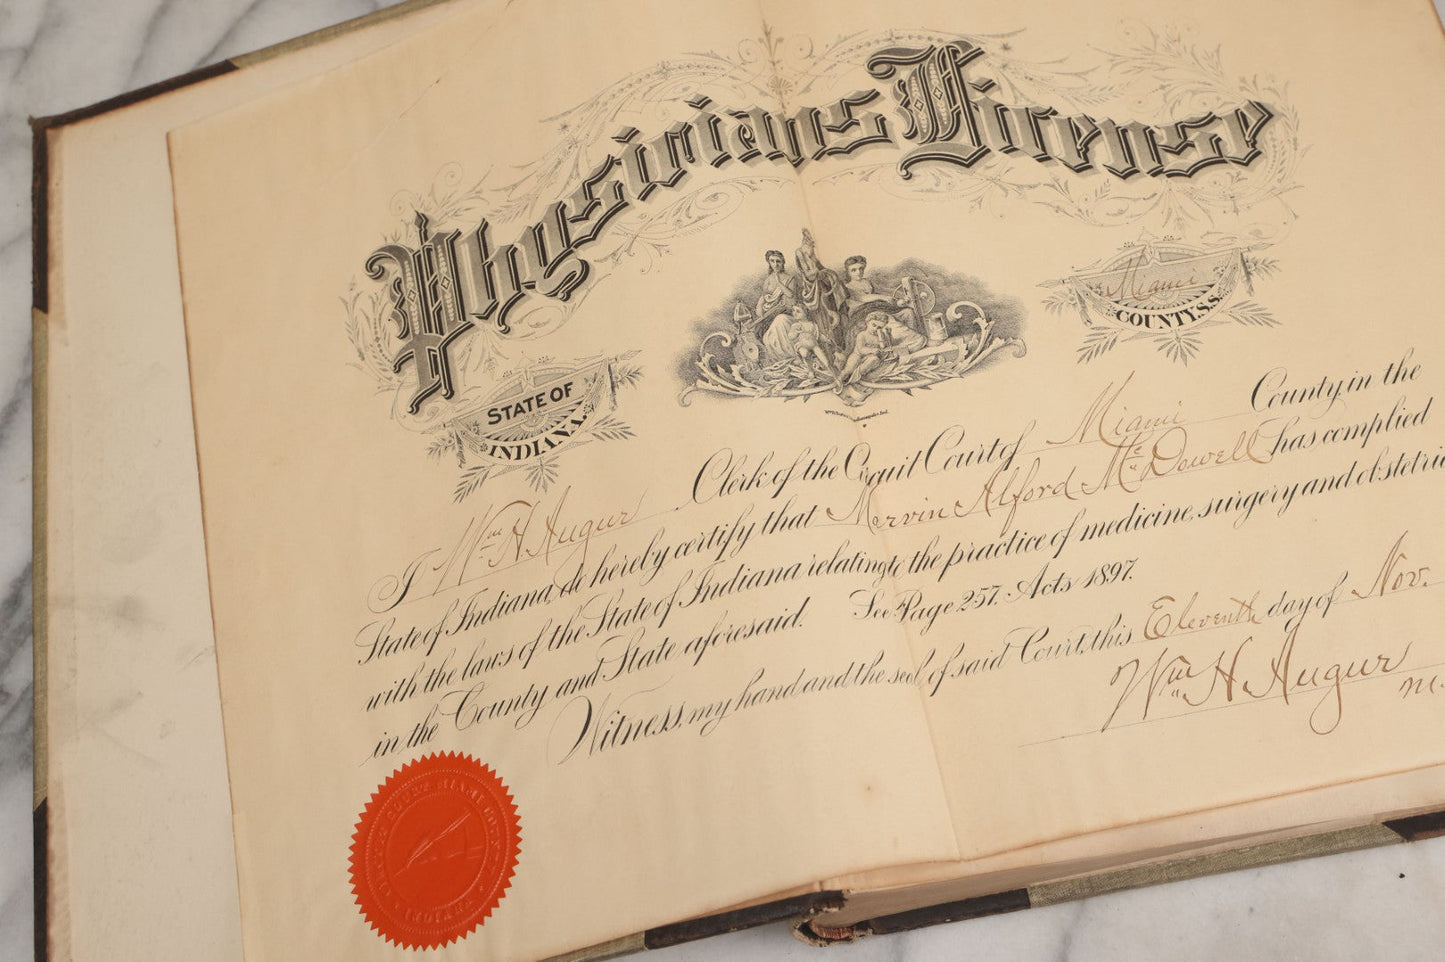 Physicians License
Miami
COUNTY, S.S.
STATE OF
INDIANA.
I Wm. H. Augur Clerk of the Circuit Court of Miami County, in the
State of Indiana, do hereby certify that Mervin Alford McDowell has complied
with the laws of the State of Indiana relating to the practice of medicine, surgery and obstetric
in the County and State aforesaid. See Page 257. Acts 1897.
Witness, my hand and the seal, of said Court, this Eleventh day of Nov.
Wm. H. Augur
M.
INDIANA